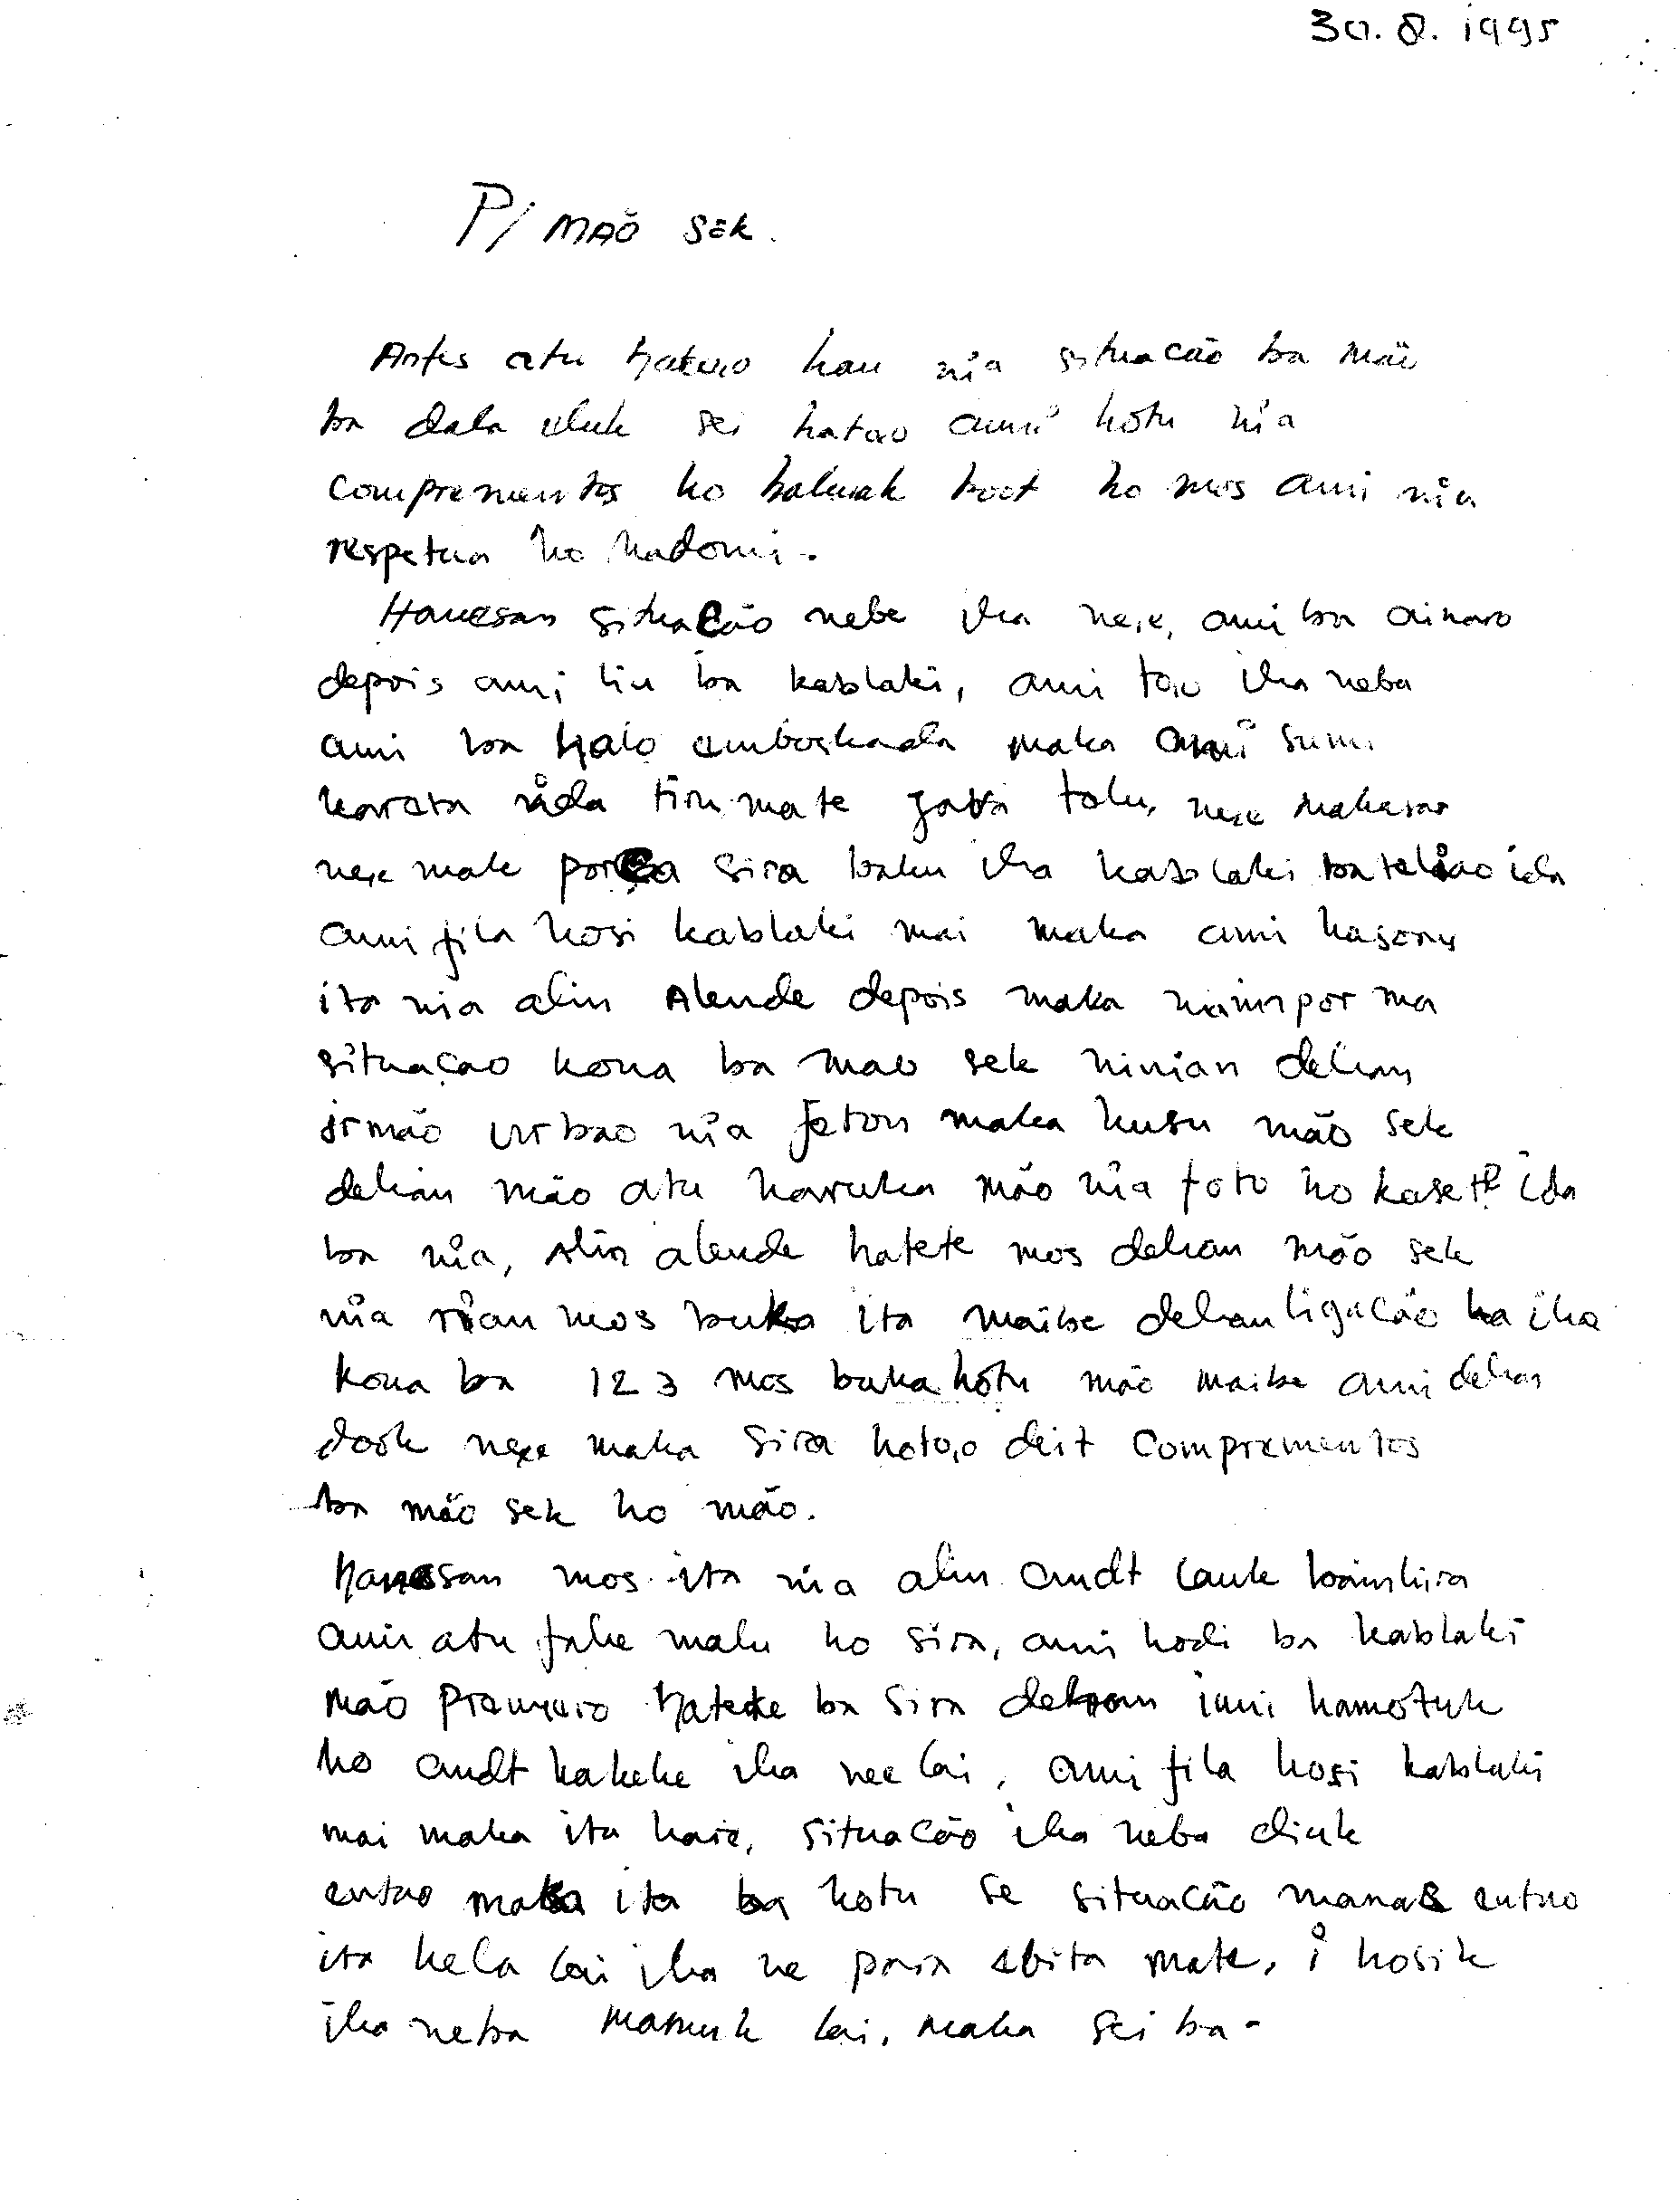 30.8.1995
P/ MAÕ SEK.
Antes atu hatoo hau nia situacão ba mão
ba dala uluk sei hatoo ami hotu nia
comprementos ho hakuak boot ho mos ami nia
respetua ho hadomi.
Hanesan situacão nebe iha neie, ami ba ainaro
depois ami liu ba kablaki, ami too iha neba
ami ba halo emboskada maka ami sunu
kareta ida tiru mate java tolu, neie
neie mate sira baku iha kablaki ida
ami fila hosi kablaki mai maka ami hasoru
ita nia alin Alende depois maka
situaçao kona ba mao sek ninian dehan
irmão urbao nia feton maka husu mão sek
dehan mão atu haruka mão nia foto ho kasete ida
ba nia, Alin alende hatete mos dehan mão sek
nia rian mos buka ita maibe dehan ligacão ha iha
kona ba 123 mos buka hotu mão maibe ami dehan
dook neie maka sira hatoo deit comprementos
ba mão sek ho mão.
hanesan mos ita nia alin cmdt lauk bainhira
ami atu fahe malu ho sira, ami hodi ba kablaki
mão premeiro hatete ba sira dehan imi hamotuk
ho cmdt kakeke iha nee lai, ami fila hosi kablaki
mai maka ita haie, situacão iha neba diak
entao maka ita ba hotu se situacão manas entao
ita hela lai iha ne para ebita mate, i hosik
iha neba mamuk lai, maka sei ba-